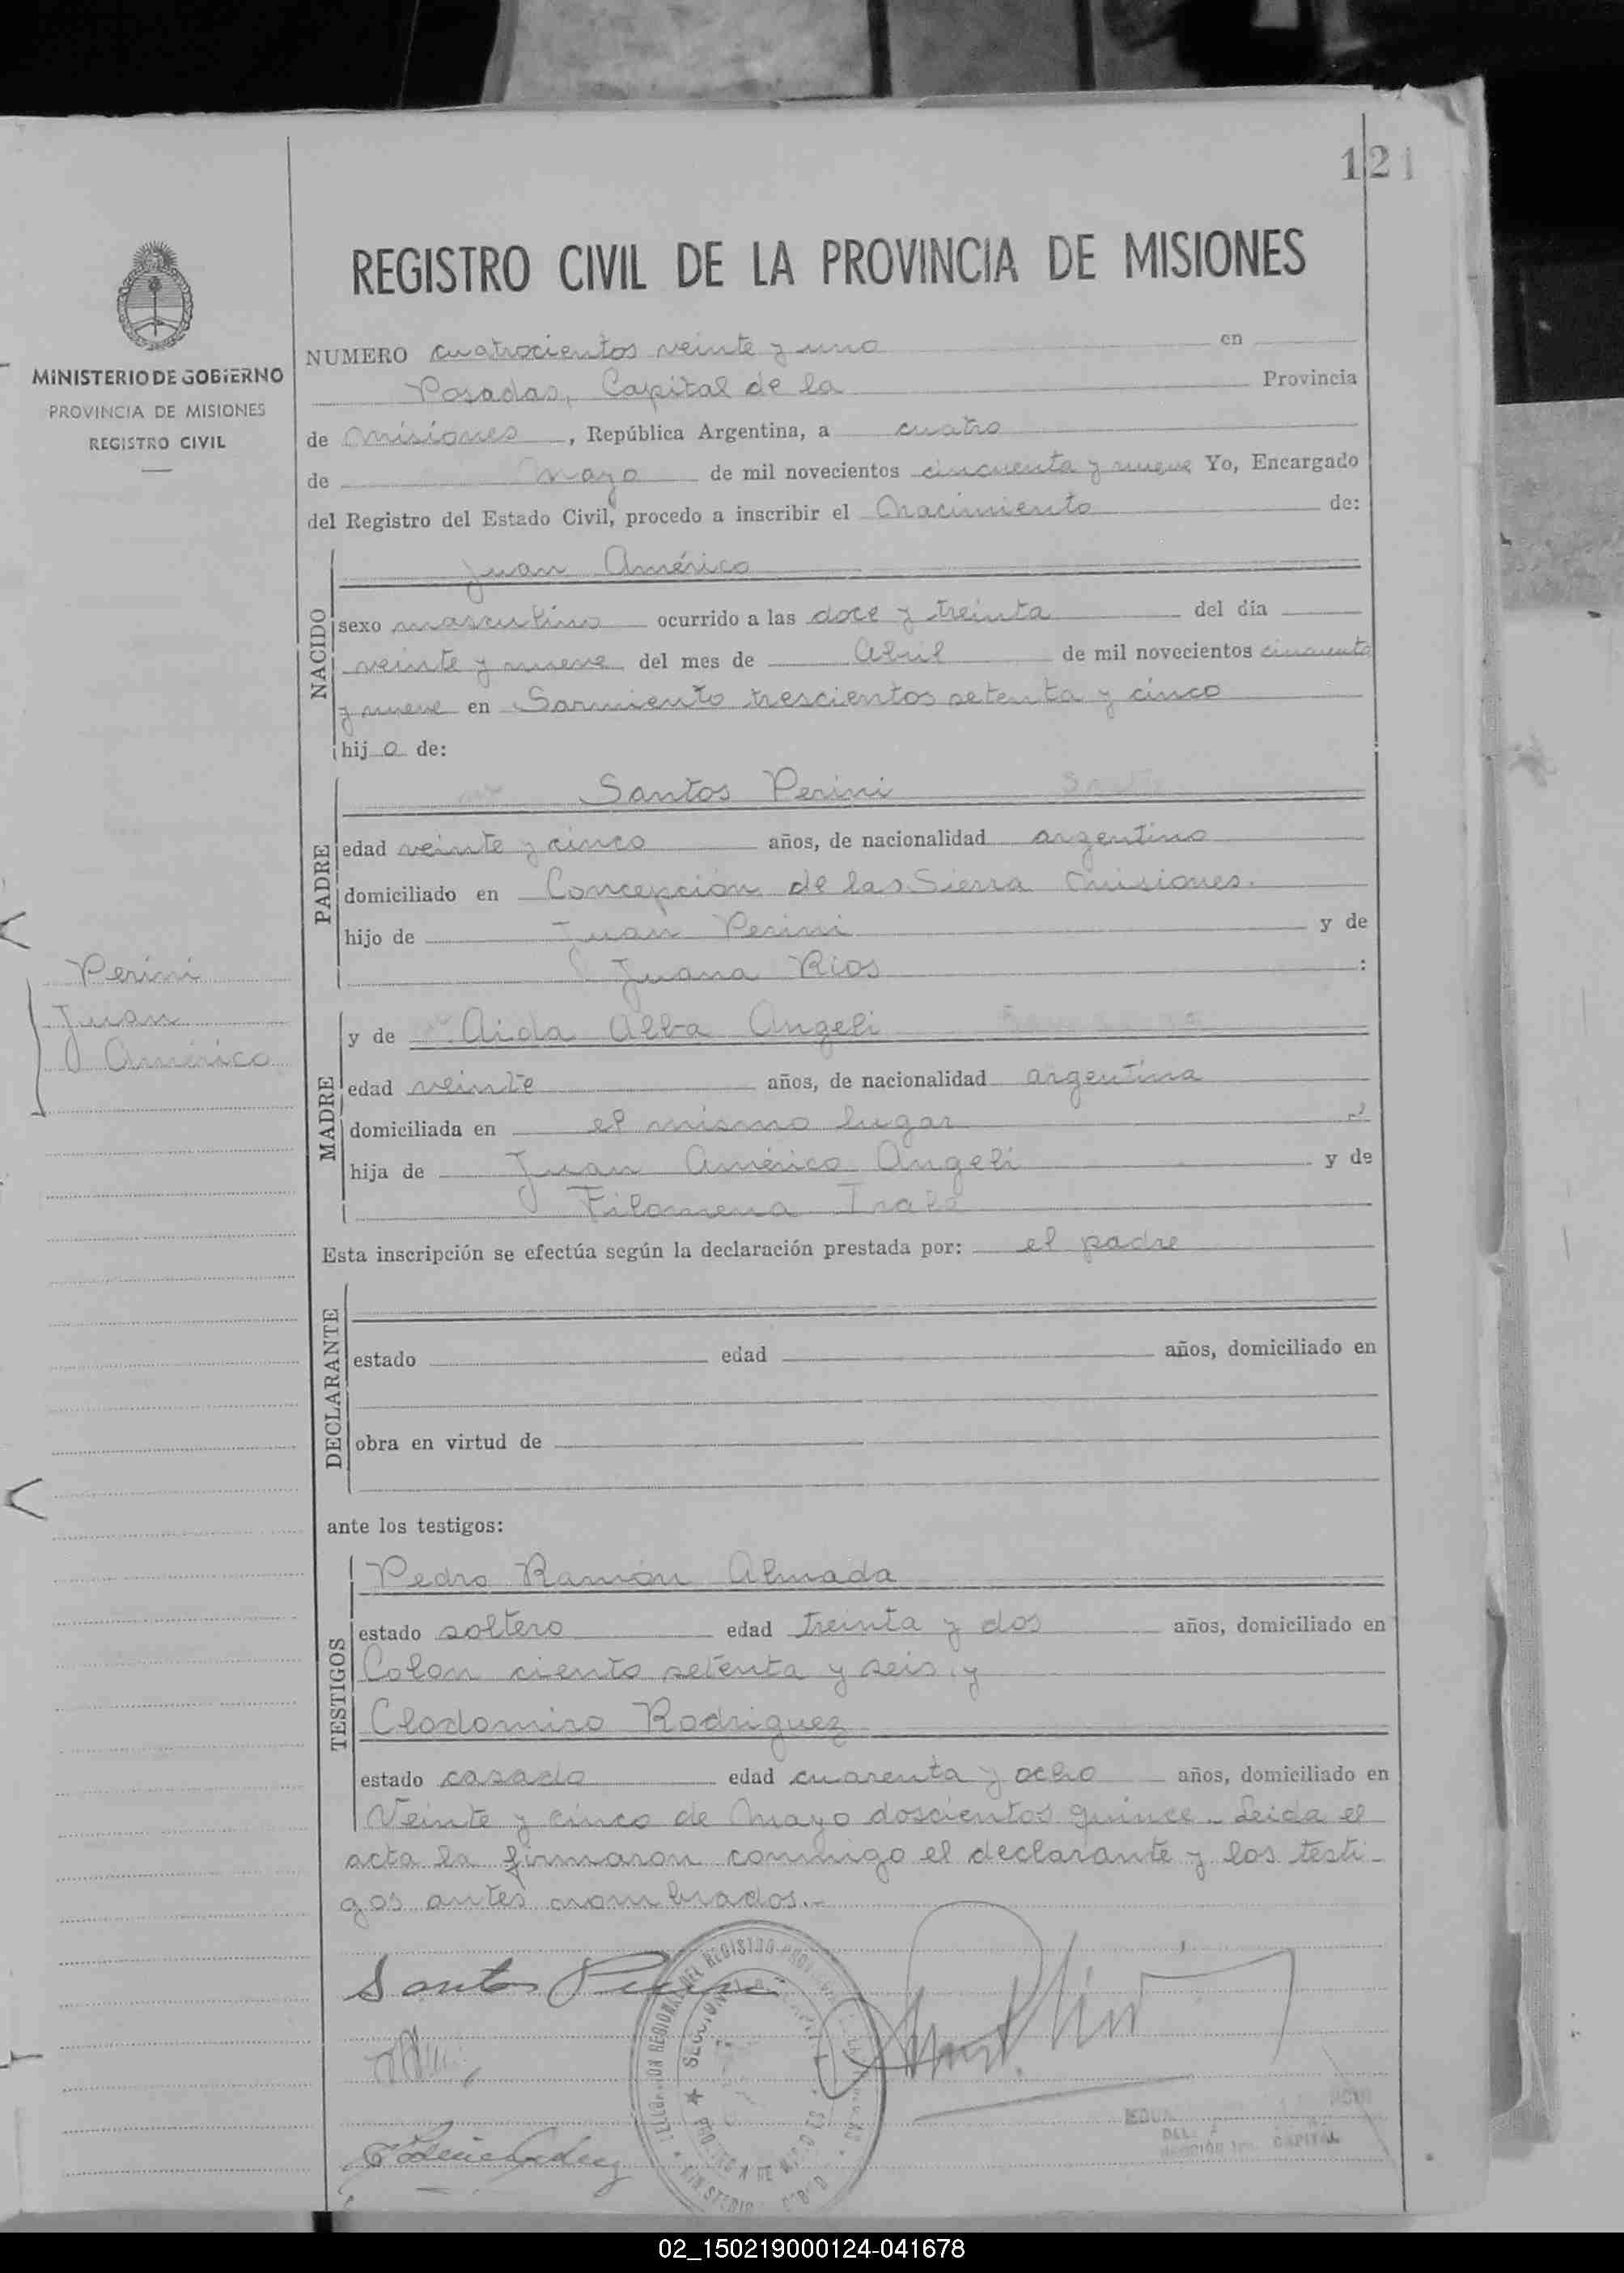 121
REGISTRO CIVIL DE LA PROVINCIA DE MISIONES
MINISTERIO DE GOBIERNO
PROVINCIA DE MISIONES
REGISTRO CIVIL
NUMERO cuatrocientos veinte y uno en
Posadas, Capital de la Provincia
de Misiones, República Argentina, a cuatro
de Mayo de mil novecientos cincuenta y nueve Yo, Encargado
del Registro del Estado Civil, procedo a inscribir el Nacimiento de:
NACIDO
Juan Américo
sexo masculino ocurrido a las doce y treinta del día
veinte y nueve del mes de Abril de mil novecientos cincuenta
y nueve en Sarmiento trescientos setenta y cinco
hijo de:
PADRE
Santos Perini
edad veinte y cinco años, de nacionalidad argentino
domiciliado en Concepción de las Sierra Misiones.
hijo de Juan Perini y de
Juana Rios :
Perini
Juan
Américo
MADRE
y de Aida Alba Angeli
edad veinte años, de nacionalidad argentina
domiciliada en el mismo lugar
hija de Juan Américo Angeli y de
Filomena
Esta inscripción se efectúa según la declaración prestada por: el padre
DECLARANTE
estado edad años, domiciliado en
obra en virtud de
ante los testigos:
TESTIGOS
Pedro Ramón Almada
estado soltero edad treinta y dos años, domiciliado en
Colon ciento setenta y seis, y
Clodomiro Rodriguez
estado casado edad cuarenta y ocho años, domiciliado en
Veinte y cinco de Mayo doscientos quince. Leida el
acta la firmaron conmigo el declarante y los testi-
gos antes nombrados.-
Santos Perini
CAPITAL
02_150219000124-041678